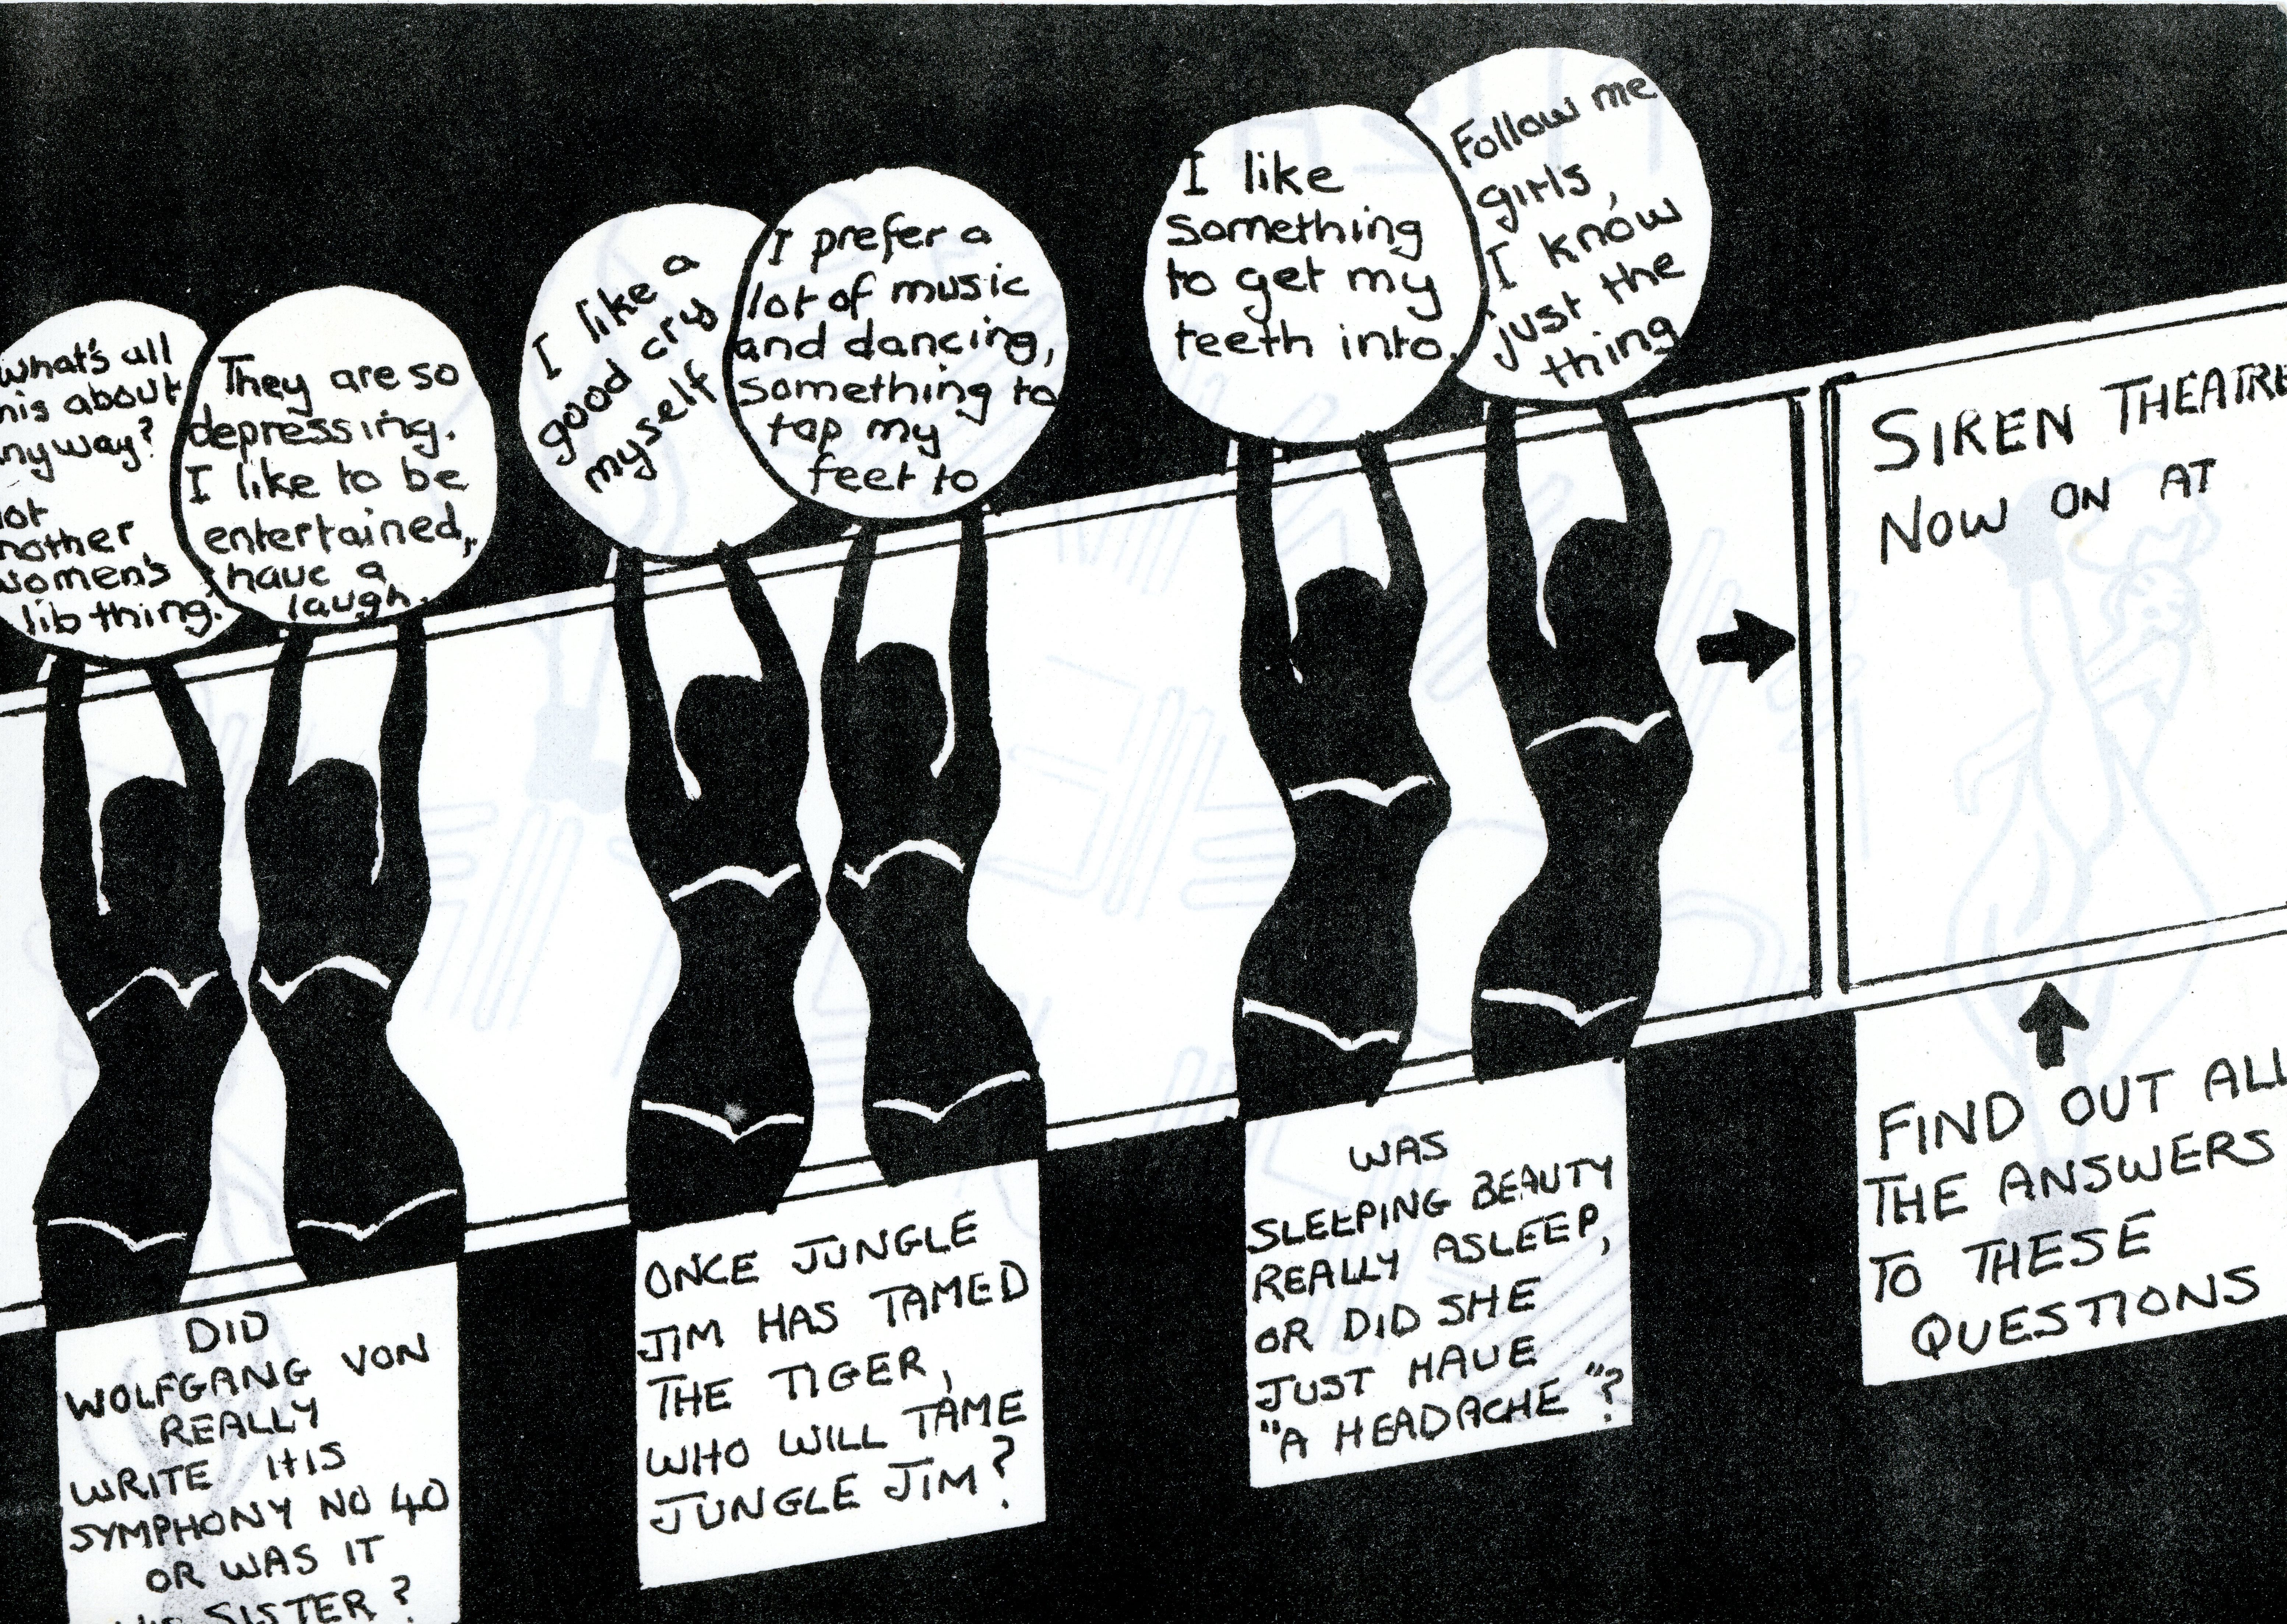 What's all
this about
anyway?
not
another
women's
lib thing.
They are so
depressing.
I like to be
entertained,
have a
laugh.
I like a
good cry
myself
I prefer a
lot of music
and dancing,
something to
tap my
feet to
I like
something
to get my
teeth into.
Follow me
girls,
I know
just the
thing
SIREN THEATRE
NOW ON AT
DID
WOLFGANG VON
REALLY
WRITE HIS
SYMPHONY NO 40
OR WAS IT
HIS SISTER?
ONCE JUNGLE
JIM HAS TAMED
THE TIGER,
WHO WILL TAME
JUNGLE JIM?
WAS
SLEEPING BEAUTY
REALLY ASLEEP,
OR DID SHE
JUST HAVE
"A HEADACHE"?
FIND OUT ALL
THE ANSWERS
TO THESE
QUESTIONS